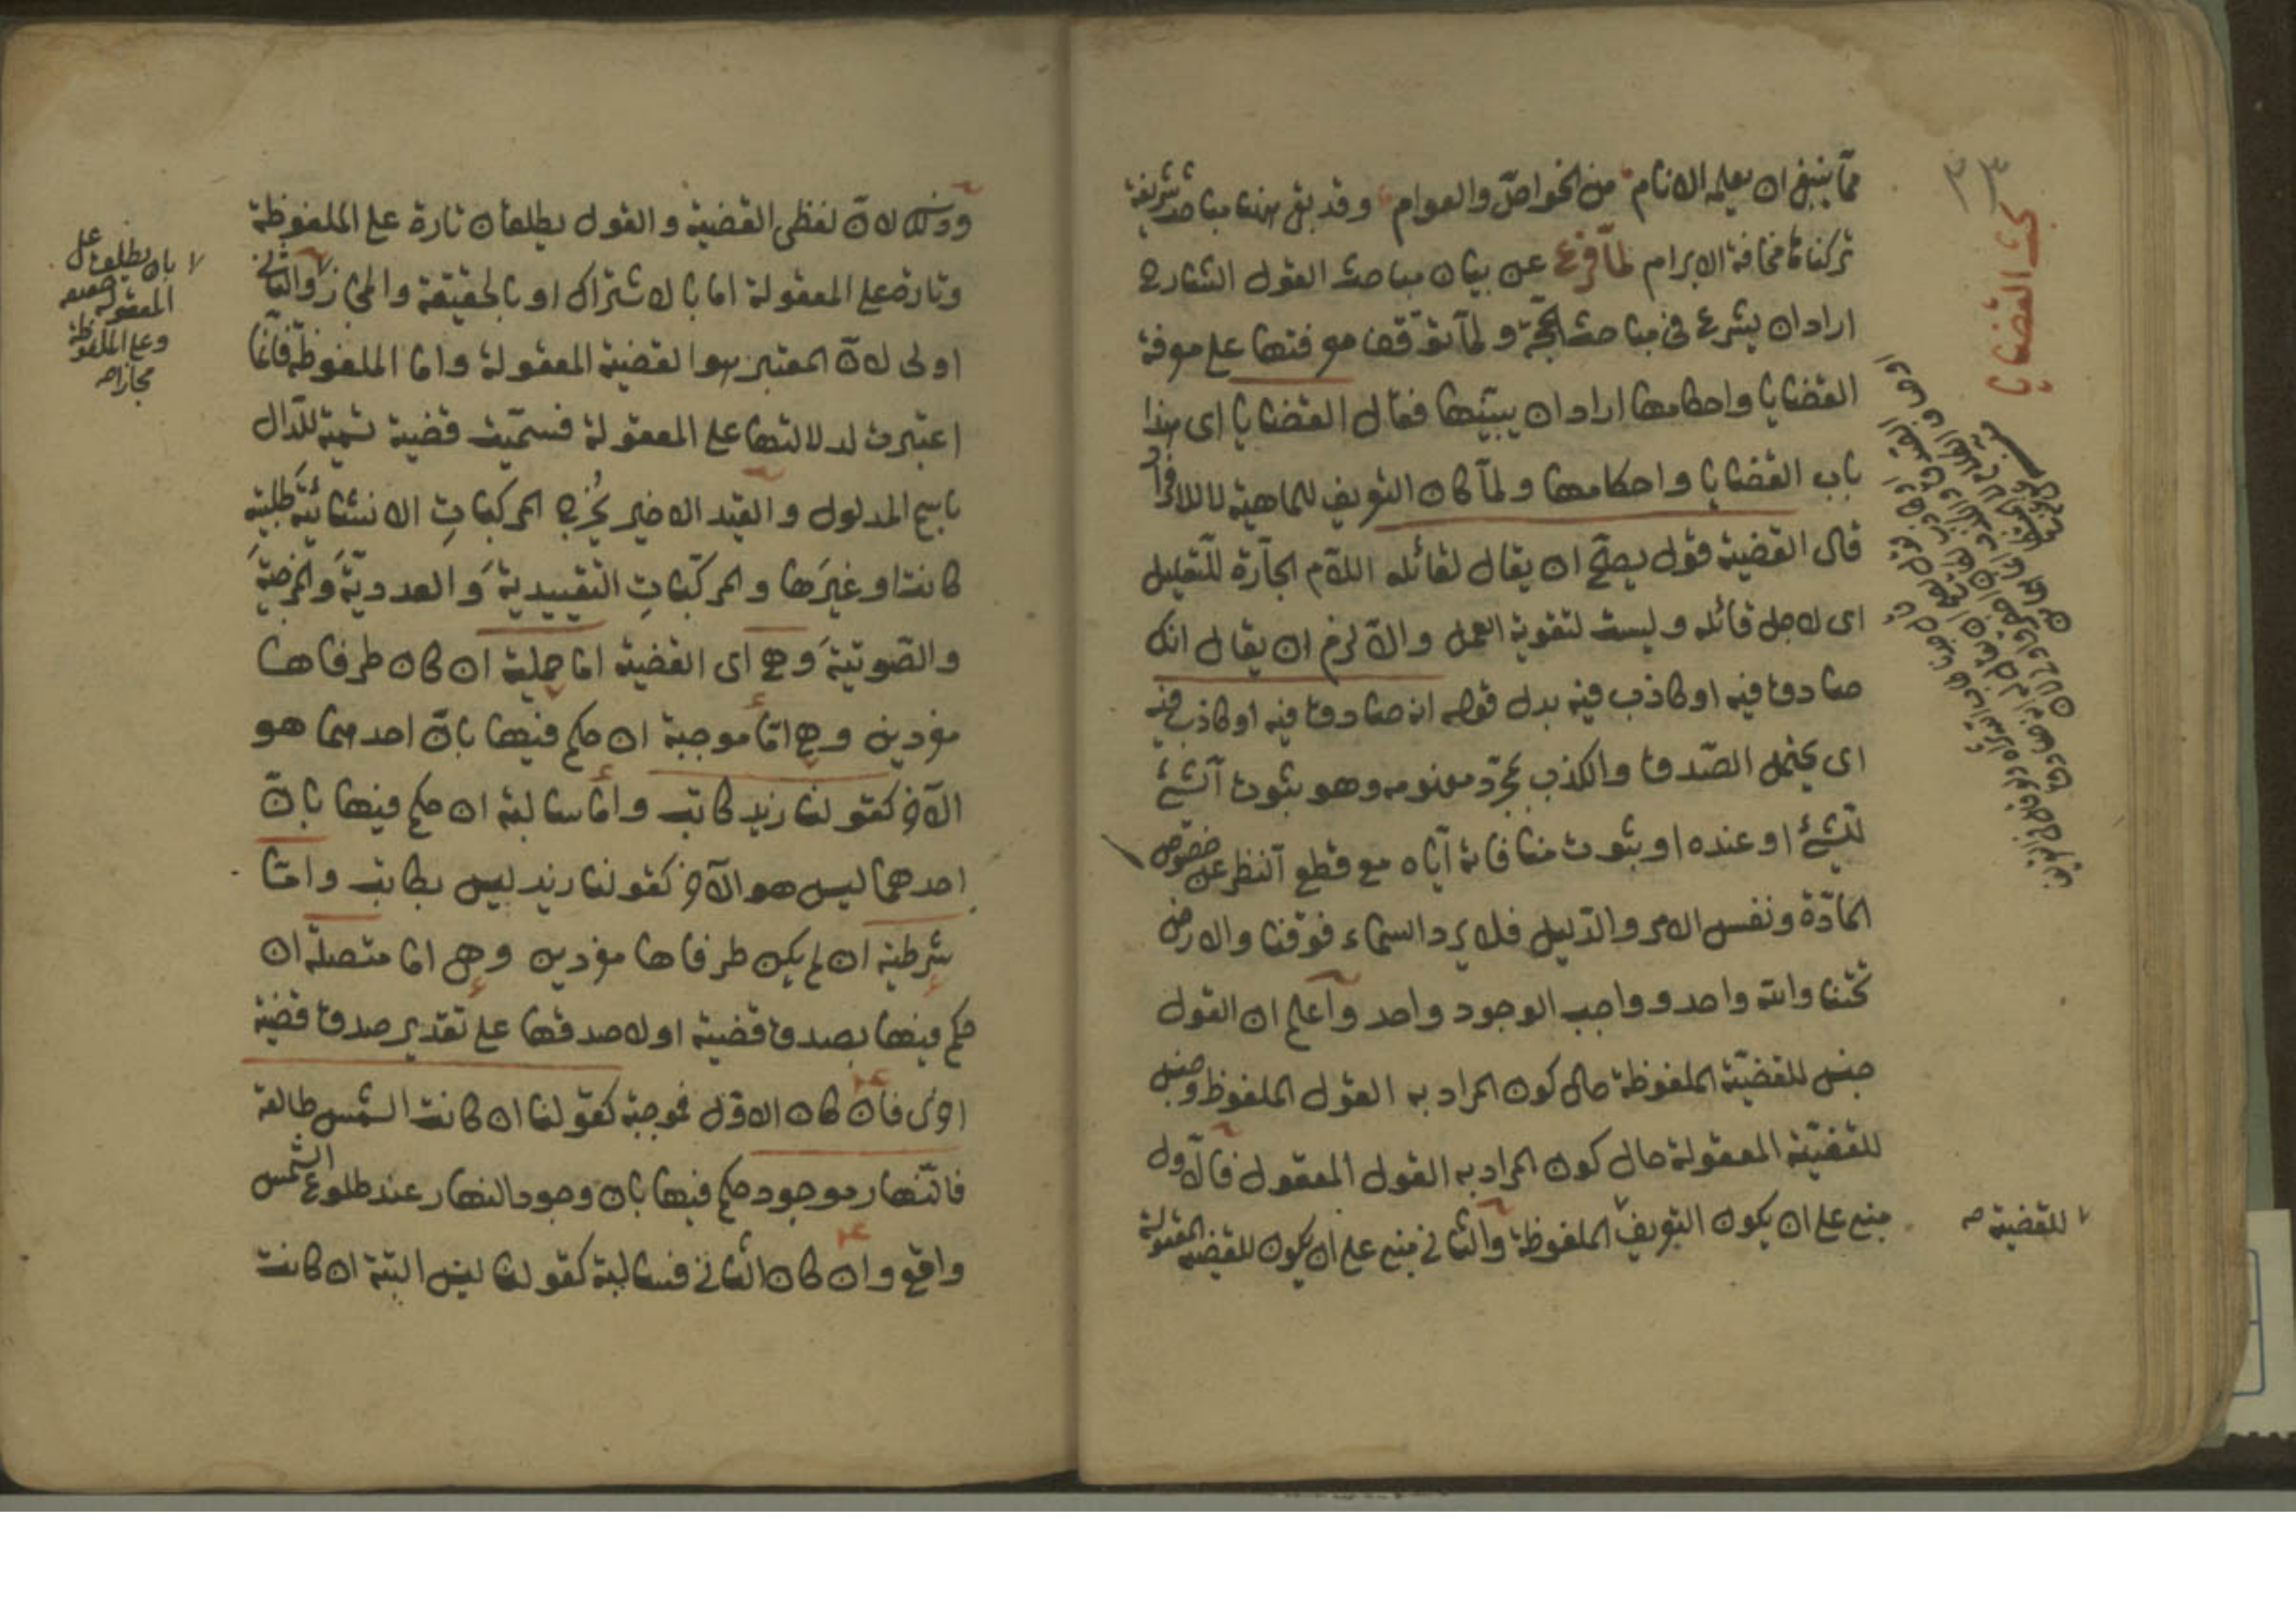 ٢٣
بحث القضايا
مما ينبغى ان يعلمه الانام من الخواص والعوام وقد بقى هنا مباحث شريفة
تركناها مخافة الابرام لما فرغ عن بيان مباحث القول الشارح
اراد ان يشرع فى مباحث الحجة ولما توقف معرفتها على معرفة
القضايا واحكامها اراد ان يبينها فقال القضايا اى هذا
باب القضايا واحكامها ولما كان التعريف للماهية لا للافراد
قال القضية قول يصح ان يقال لقائله اللام الجارة للتعليل
اى لاجل قائله وليست لتقوية العمل والا لزم ان يقال انك
صادق فيه او كاذب فيه بدل قوله انه صادق فيه او كاذب فيه
اى يحتمل الصدق والكذب بمجرد مفهومه وهو ثبوت الشئ
للشئ او عنده او ثبوت منافاته اياه مع قطع النظر عن خصوص
المادة ونفس الامر والدليل فلا يرد السماء فوقنا والارض
تحتنا والله واحد وواجب الوجود واحد واعلم ان القول
جنس للقضية الملفوظة حال كون المراد به القول الملفوظ وجنس
للقضية المعقولة حال كون المراد به القول المعقول فالاول
مبنى على ان يكون التعريف الملفوظة والثانى مبنى على ان يكون للقضية المعقولة
للقضية صح
وذلك لان لفظى القضية والقول يطلقان تارة على الملفوظة
وتارة على المعقولة اما بالاشتراك او بالحقيقة والمجاز والثانى
اولى لان المعتبر هو القضية المعقولة واما الملفوظة فانما
اعتبرت لدلالتها على المعقولة فسميت قضية تسمية للدال
باسم المدلول والقيد الاخير يخرج المركبات الانشائية طلبية
كانت او غيرها والمركبات التقييدية والعددية والمزجية
والصوتية وهى اى القضية اما حملية ان كان طرفاها
مفردين وهى اما موجبة ان حكم فيها بان احدهما هو
الآخر كقولنا زيد كاتب واما سالبة ان حكم فيها بان
احدهما ليس هو الآخر كقولنا زيد ليس بكاتب واما
شرطية ان لم يكن طرفاها مفردين وهى اما متصلة ان
حكم فيها بصدق قضية او لا صدقها على تقدير صدق قضية
اخرى فان كان الاول فموجبة كقولنا ان كانت الشمس طالعة
فالنهار موجود حكم فيها بان وجود النهار عند طلوع الشمس
واقع وان كان الثانى فسالبة كقولنا ليس البتة ان كانت
بان يطلق على
المعقولة حقيقة
وعلى الملفوظة
مجازا صح